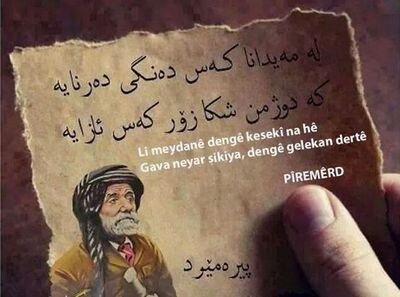 لە مەیدانا کەس دەنگی دەرنایە
کە دوژمن شکا زۆر کەس ئازایە
Li meydanê dengê kesekî na hê
Gava neyar şikiya, dengê gelekan dertê
PÎREMÊRD
پیرەمێرد